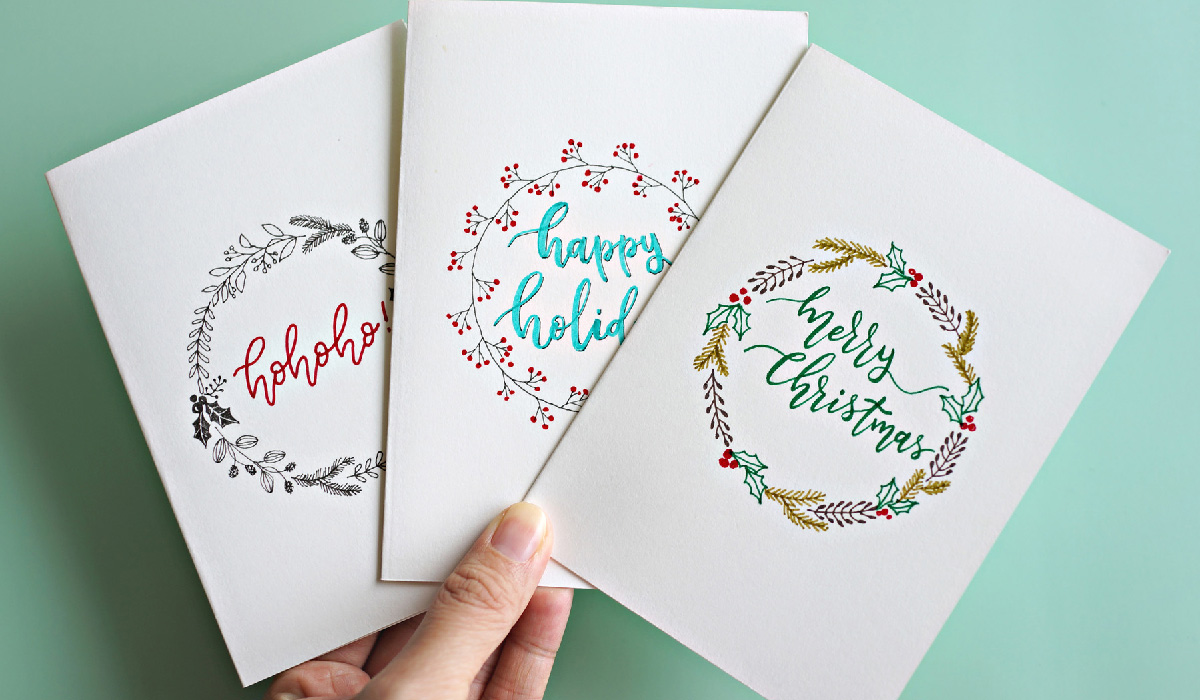 hohoho!
happy
holid
merry
Christmas